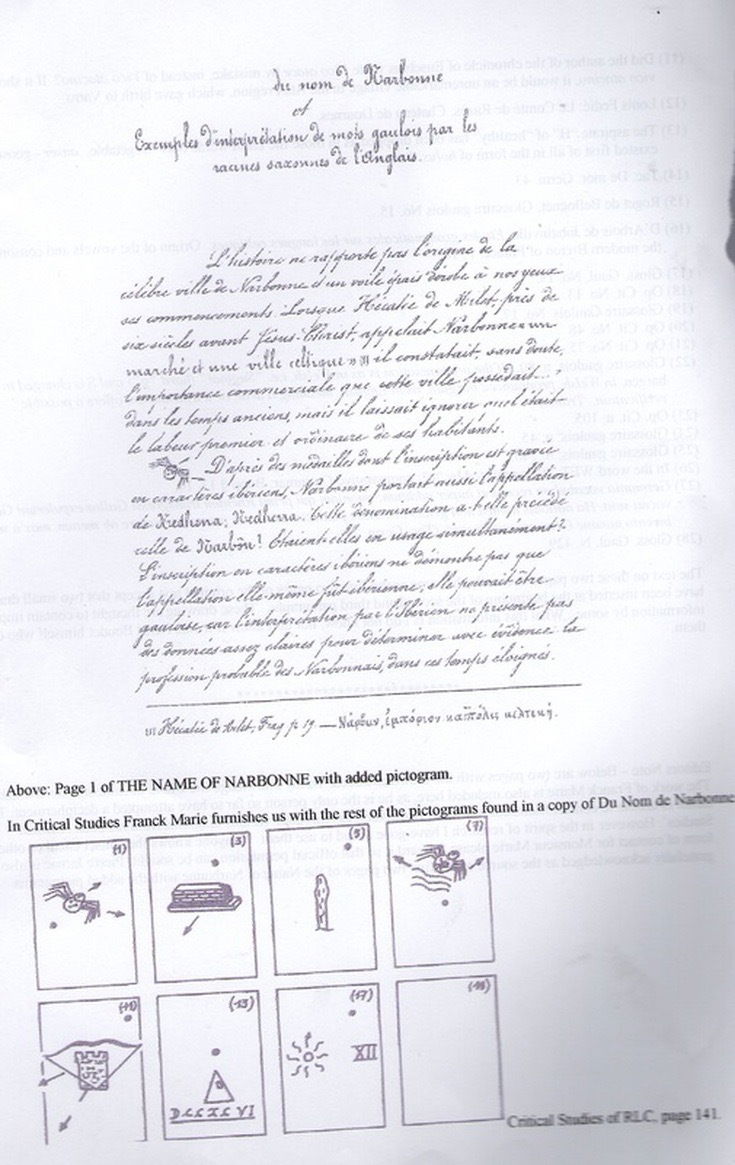 du nom de Narbonne
et
Exemples d'interprétation de mots gaulois par les
racines saxonnes de l'Anglais.
L'histoire ne rapporte pas l'origine de la
célèbre ville de Narbonne et un voile épais dérobe à nos yeux
ses commencements. Lorsque Hécatée de Milet, près de
six siècles avant Jésus-Christ, appelait Narbonne « un
marché et une ville celtique » (1) il constatait sans doute,
l'importance commerciale que cette ville possédait
dans les temps anciens, mais il laissait ignorer quel était
le labeur premier et ordinaire de ses habitants.
D'après des médailles dont l'inscription est gravée
en caractères ibériens, Narbonne portait aussi l'appellation
de Nedhena, Nedhena. Cette dénomination a-t-elle précédé
celle de Narbôn? Étaient-elles en usage simultanément?
L'inscription en caractères ibériens ne démontre pas que
l'appellation elle-même fût ibérienne; elle pouvait être
gauloise, car l'interprétation par l'Ibérien ne présente pas
des données assez claires pour déterminer avec évidence la
profession probable des Narbonnais, dans ces temps éloignés.
(1) Hécatée de Milet, Frag. p. 19. — Νάρβων, ἐμπόριον καὶ πόλις κελτική.
Above: Page 1 of THE NAME OF NARBONNE with added pictogram.
In Critical Studies Franck Marie furnishes us with the rest of the pictograms found in a copy of Du Nom de Narbonne
(1) (3) (5) (7)
(11) (13) (17) (18)
XII
DCCXCVI
Critical Studies of RLC, page 141.